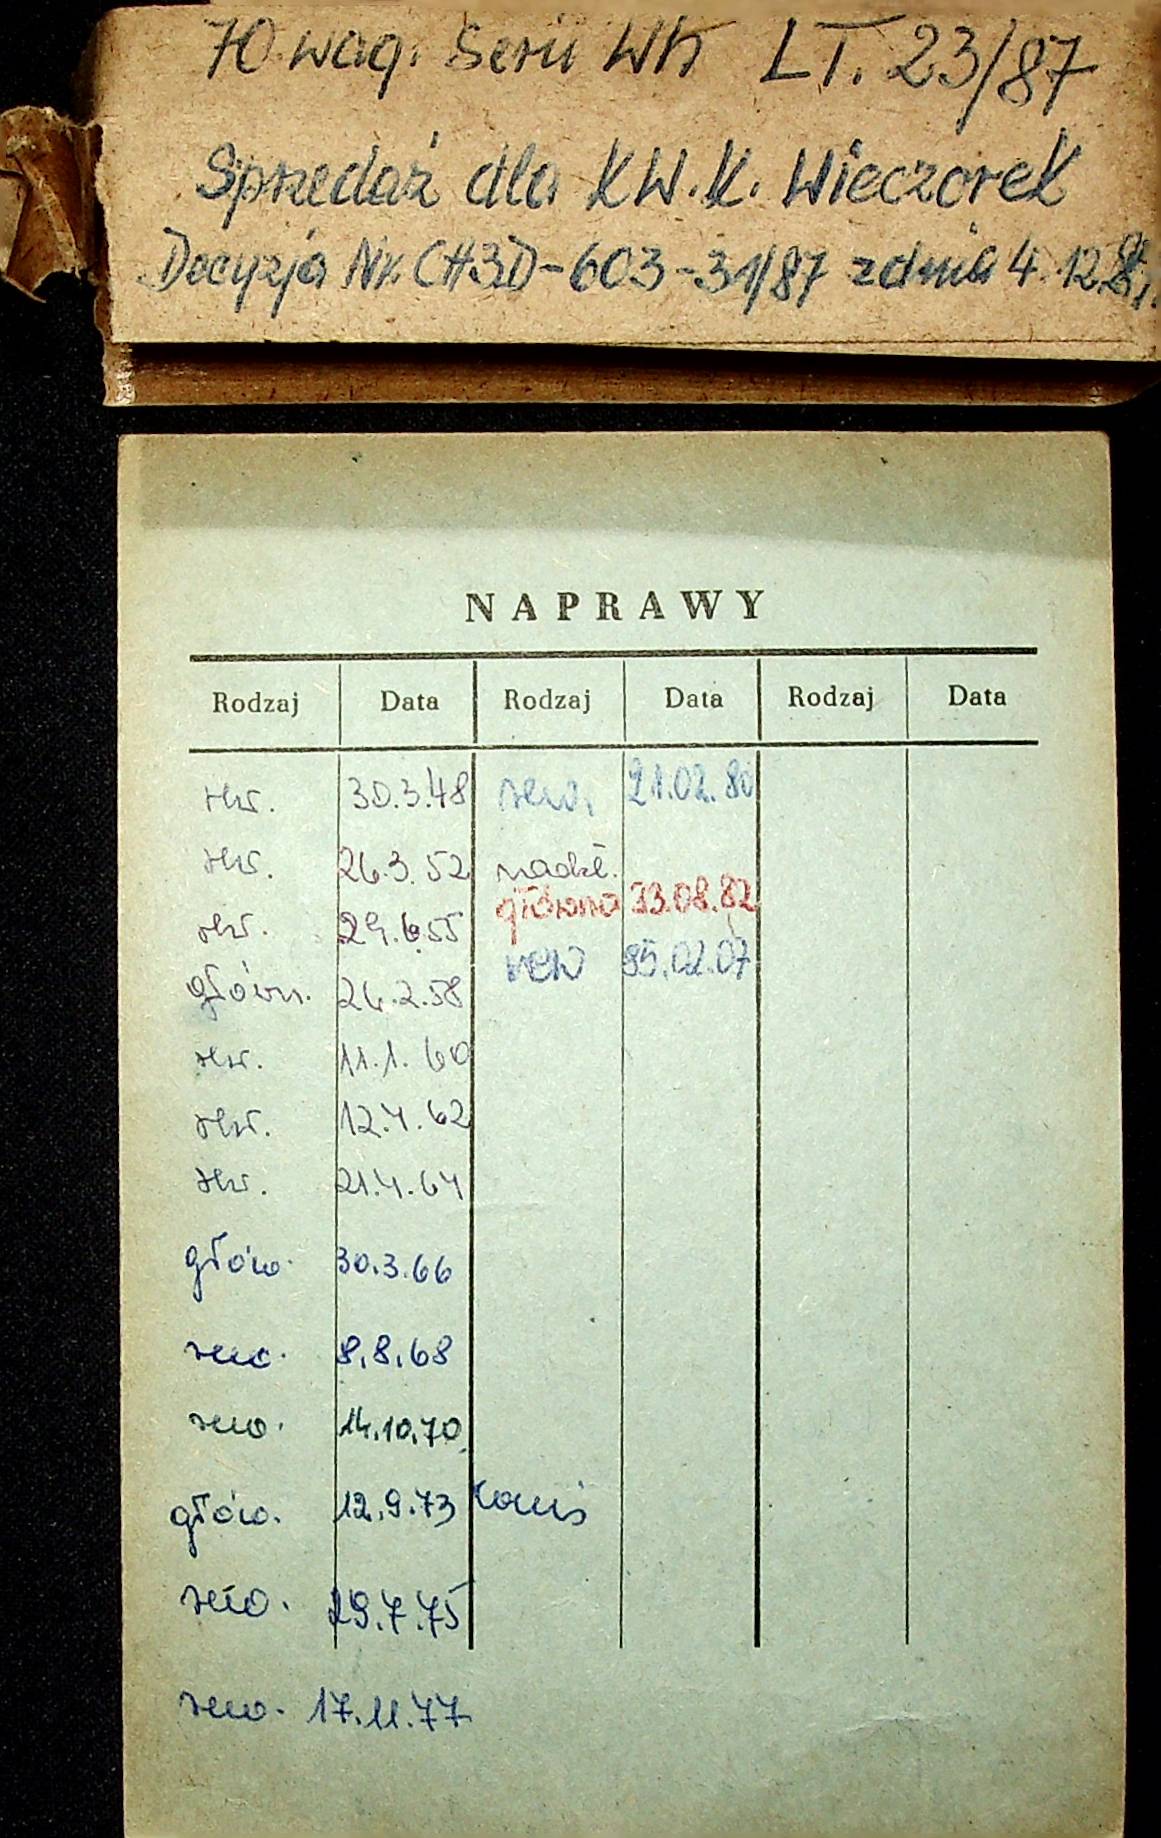 70 wag. Serii Wh LT. 23/87
Sprzedaż dla KW.K. Wieczorek
Decyzja Nr. CH3D-603-31/87 z dnia 4.12.87r.
NAPRAWY
Rodzaj Data Rodzaj Data Rodzaj Data
rew. 30.3.48 rew. 21.02.80
rew. 26.3.52 nadzł.
główna 23.08.82
rew. 29.6.55
rew 85.02.07
główn. 26.2.58
rew. 11.1.60
rew. 12.4.62
rew. 21.4.64
głów. 30.3.66
rew. 8.8.68
rew. 14.10.70
głów. 12.9.73
rew. 29.7.75
rew. 17.11.77